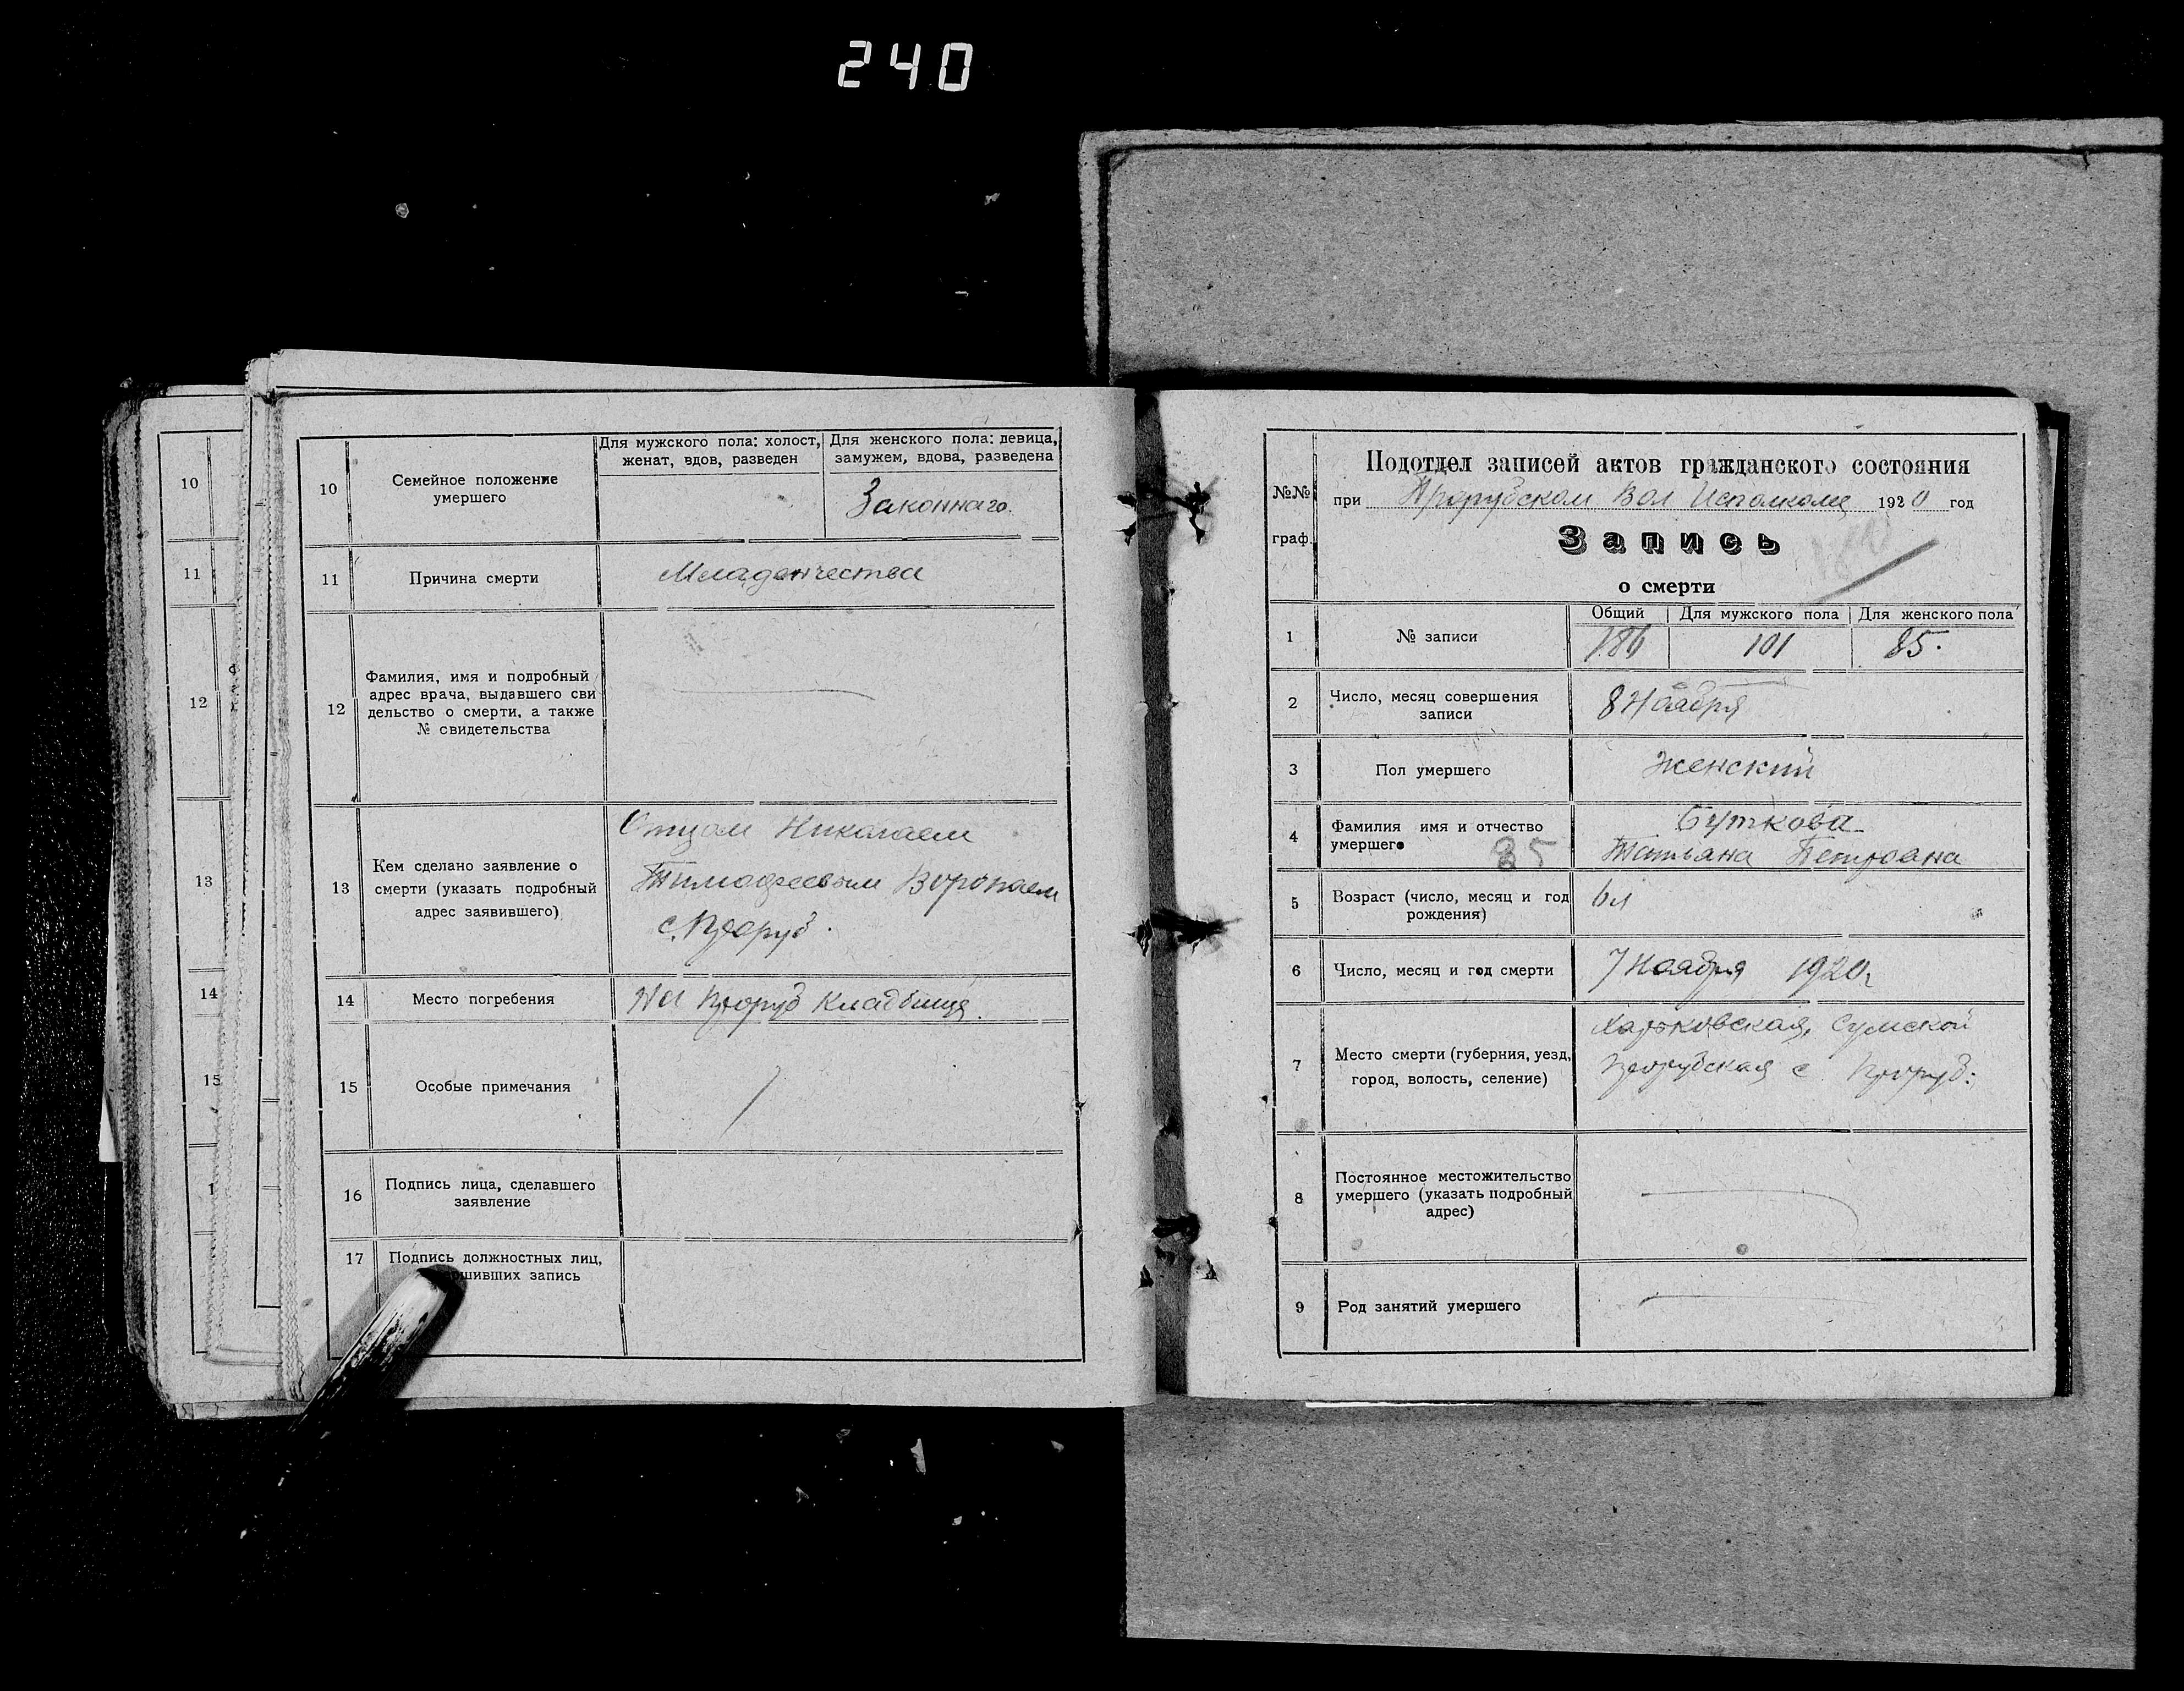 240
10
11
12
13
14
15
1
10
Семейное положение
умершего
Для мужского пола: холост,
женат, вдов, разведен
Для женского пола: девица,
замужем, вдова, разведена
Законнаго.
11
Причина смерти
Младенчества
12
Фамилия, имя и подробный
адрес врача, выдавшего сви
дельство о смерти, а также
№ свидетельства
13
Кем сделано заявление о
смерти (указать подробный
адрес заявившего)
Отцом Николаем
Тимофеевым Воропаем
с.
14
Место погребения
На Кладбище.
15
Особые примечания
16
Подпись лица, сделавшего
заявление
17
Подпись должностных лиц,
ршивших запись
№№
граф.
Подотдел записей актов гражданского состояния
при Вол Исполкоме 1920 год
Запись
о смерти
1
№ записи
Общий
Для мужского пола
Для женского пола
186
101
85.
2
Число, месяц совершения
записи
8 Ноября
3
Пол умершего
Женский
4
Фамилия имя и отчество
умершего
85
Буткова
Татьяна Петровна
5
Возраст (число, месяц и год
рождения)
6 л
6
Число, месяц и год смерти
7 Ноября 1920 г
7
Место смерти (губерния, уезд,
город, волость, селение)
Харьковская, Сумской
с
8
Постоянное местожительство
умершего (указать подробный
адрес)
9
Род занятий умершего